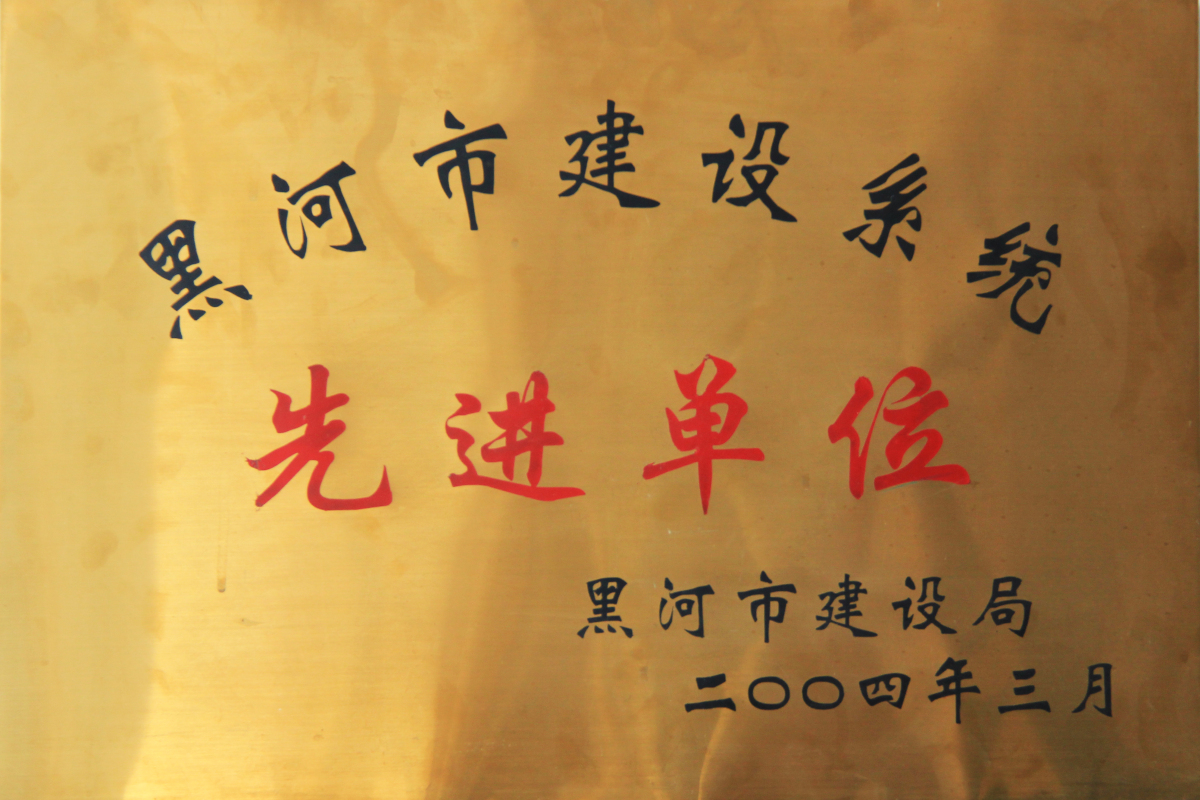 黑河市建设系统
先进单位
黑河市建设局
二〇〇四年三月